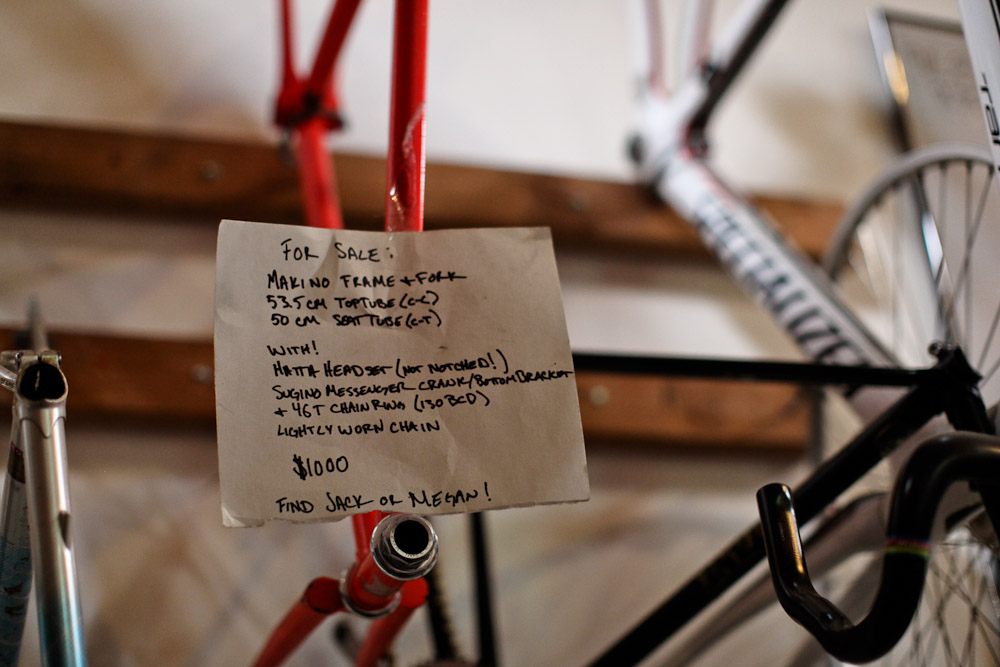 FOR SALE:
MAKINO FRAME + FORK
53.5 CM TOPTUBE (C-C)
50 CM SEAT TUBE (C-T)
WITH!
HATTA HEADSET (NOT NOTCHED!)
SUGINO MESSENGER CRANK/BOTTOM BRACKET
+ 46T CHAINRING (130 BCD)
LIGHTLY WORN CHAIN
$1000
FIND JACK OR MEGAN!